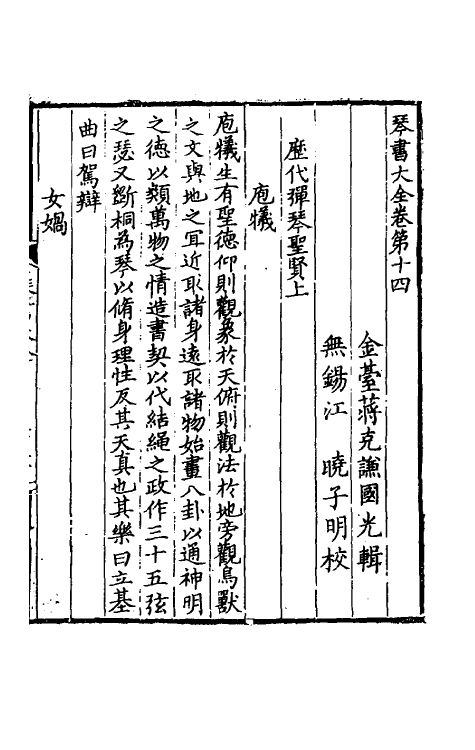 琴書大全卷第十四
金臺蔣克謙國光輯
無錫江　曉子明校
歷代彈琴聖賢上
庖犧
庖犧生有聖德仰則觀象於天俯則觀法於地旁觀鳥獸
之文與地之冝近取諸身遠取諸物始畫八卦以通神明
之德以類萬物之情造書契以代結繩之政作三十五弦
之瑟又斲桐為琴以脩身理性反其天真也其樂曰立基
曲曰駕辯
女媧